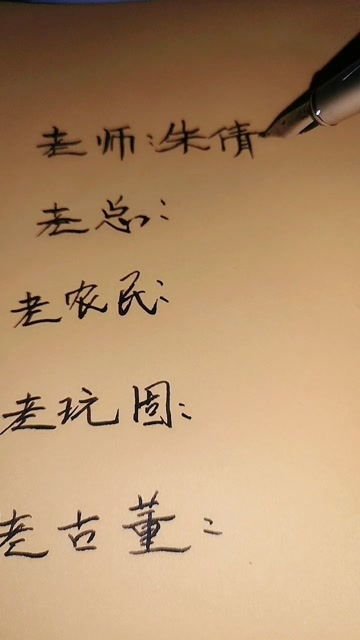 老师:朱倩
老总:
老农民:
老玩固:
老古董: